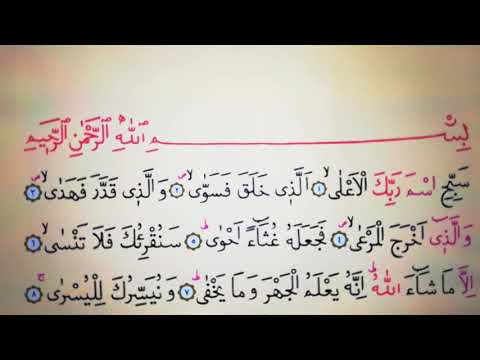 بِسْمِ اللّٰهِ الرَّحْمٰنِ الرَّحٖيمِ
سَبِّحِ اسْمَ رَبِّكَ الْاَعْلٰىۙ ﴿١﴾ اَلَّذٖى خَلَقَ فَسَوّٰىۙ ﴿٢﴾ وَالَّذٖى قَدَّرَ فَهَدٰىۙ ﴿٣﴾
وَالَّذٖٓى اَخْرَجَ الْمَرْعٰىۙ ﴿٤﴾ فَجَعَلَهُ غُثَٓاءً اَحْوٰىؕ ﴿٥﴾ سَنُقْرِئُكَ فَلَا تَنْسٰىۙ ﴿٦﴾
اِلَّا مَا شَٓاءَ اللّٰهُؕ اِنَّهُ يَعْلَمُ الْجَهْرَ وَمَا يَخْفٰىؕ ﴿٧﴾ وَنُيَسِّرُكَ لِلْيُسْرٰىۚ ﴿٨﴾